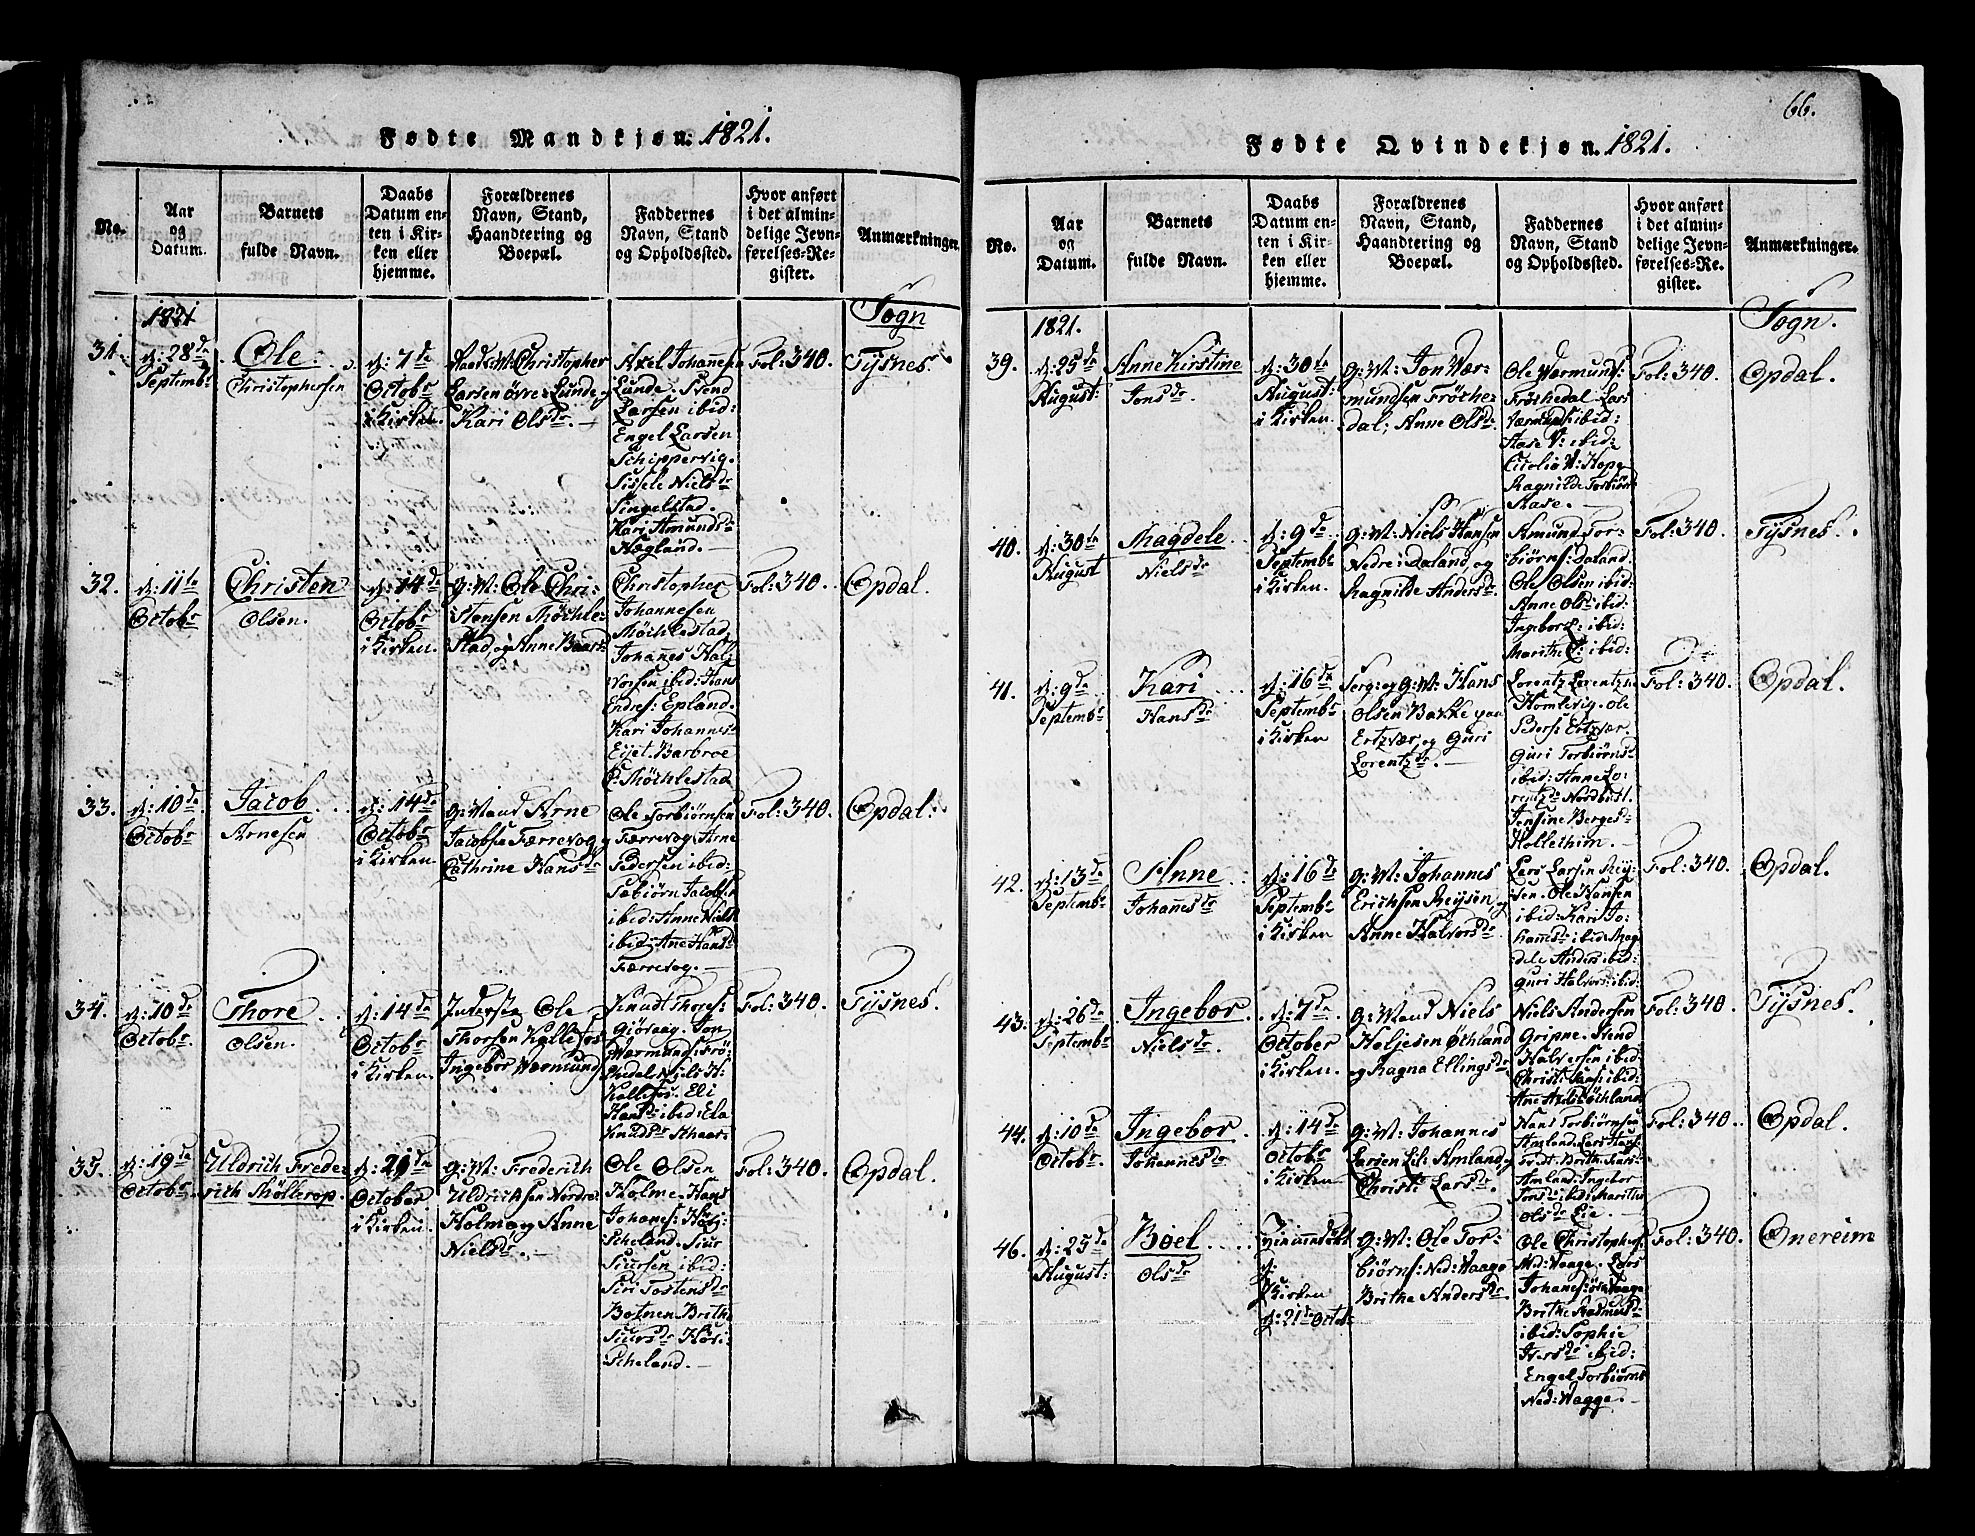 Fødte Mandkjøn. 1821.
No.
Aar
og
Datum.
Barnets
fulde Navn.
Daabs
Datum en-
ten i Kir-
ken eller
hjemme.
Forældrenes
Navn, Stand,
Haandtering og
Boepæl.
Faddernes
Navn, Stand
og Opholdssted.
Hvor anført
i det almin-
delige Jevn-
førelses-Re-
gister.
Anmærkninger.
1821
Sogn
31.
d: 28de
Septembr
Ole
Christophersen
d: 7de
Octobr
i Kirken.
Christopher
Larsen øvre Lunde og
Kari Olsdr.
Axel Johannesen
Lunde. Svend
Larsen ibid:
Engel Larsen
Schippervig.
Sissele Nielsdr
Singelstad.
Kari Amundsdr
Hægland.
Fol: 340.
Tysnes.
32.
d: 11te
Octobr
Christen
Olsen.
d: 14de
Octobr
i Kirken.
g: M: Ole Chri-
stensen Møchle-
stad og Anne Baars-
Christopher
Johannesen
Møchlestad
Johanes Hal-
vorsen ibid: Hans
Endres: Epland.
Kari Johannes
Eijet. Barbroe
P: Møchlestad
Fol: 340
Opdal.
33.
d: 10de
Octobr
Jacob
Arnesen
d: 14de
Octobr
i Kirken.
g: Mand Arne
Jacobsen Færrevog og
Cathrine Hansdr
Ole Torbiørnsen
Færrevog. Arne
Pedersen ibid:
Tabiørn Jacobsen
ibid: Anne Niels
ibid: Ane Hansdr
Færrevog.
Fol: 340.
Opdal.
34.
d: 10de
Octobr
Thore
Olsen.
d: 14de
Octobr
i Kirken.
Inderste Ole
Thorsen Kallefos
Ingebor Wærmunds
Knudt Thores:
Gjøsaag. Jon
Wærmunds: Frö-
chedal. Niels H:
Kallefos. Eli
Hansdr ibid: Ela
Knudsdr Skaar.
Fol: 340.
Tysnes.
35.
d: 19de
Octobr
Uldrich Frede-
rich Møllerop.
d: 21de
October
i Kirken.
g: M: Frederich
Uldrichsen Nordre
Holme og Anne
Nielsdr.
Ole Olsen
Holme. Hans
Johanes: Høi-
scheland. Siur
Siursen ibid:
Siri Tostensdr
Botnen. Brithe
Siursdr Høi-
scheland.
Fol: 340.
Opdal.
66.
Fødte Qvindekjøn. 1821.
No.
Aar
og
Datum.
Barnets
fulde Navn.
Daabs
Datum en-
ten i Kir-
ken eller
hjemme.
Forældrenes
Navn, Stand,
Haandtering og
Boepæl.
Faddernes
Navn, Stand
og Opholdssted.
Hvor anført
i det almin-
delige Jevn-
førelses-Re-
gister.
Anmærkninger.
1821.
Sogn.
39.
d: 25de
August:
Anne Kirstine
Jonsdr
d: 30te
August:
i Kirken.
g: M: Jon Wær-
mundsen Fröche-
dal; Anne Olsdr
Ole Wærmunds:
Fröchedal. Lars
Værmunds: ibid:
Aase V: ibid:
Cicelia V: Hope
Ragnilde Torbiørns
Aase.
Fol: 340.
Opdal.
40.
d: 30te
August
Magdele
Nielsdr
d: 9de
Septembr
i Kirken.
g: M: Niels Hansen
Nedre Daland, og
Ragnilde Andersdr.
Amund Tor-
biørns: Daland.
Ole Olsen ibid:
Anne Olsdr ibid:
Ingebor ibid:
Marithe ibid:
Fol: 340.
Tysnes.
41.
d: 9de
Septembr
Kari
Hansdr
d: 16de
Septembr
i Kirken
Serg: og g: M: Hans
Olsen Bakke paa
Ertzvær, og Guri
Lorentzdr.
Lorentz Lorentzen
Homlevig. Ole
Bers: Ertzvær.
Guri Torbiørns
ibid: Anne Lo-
rentzdr Nordbust.
Jensine Berges-
Hollethim.
Fol: 340.
Opdal.
42.
d: 13de
Septembr
Anne
Johannesdr
d: 16de
Septembr
i Kirken
g: M: Johannes
Erichsen Reysen, og
Anne Halvorsdr
Lars Larsen Rey-
sen. Ole Hansen
ibid: Kari Jo-
hannesdr ibid: Mag-
dele Anders ibid:
Guri Halvors: ibid:
Fol: 340.
Opdal.
43.
d: 26de
Septembr
Ingebor
Nielsdr
d: 7de
October
i Kirken.
g: Mand Niels
Holjesen Øthland
og Ragna Ellingsdr
Niels Andersen
Gripne. Svend
Halversen ibid:
Christi Hans: ibid:
Ane Axels: Øthland
Fol: 340.
Tysnes.
44.
d: 10de
Octobr.
Ingebor
Johannesdr
d: 14de
Octobr
i Kirken
g: M: Johannes
Larsen Lil: Amland, og
Christi Larsdr.
Hans Torbiørnsen
Amland. Lars Hans:
Tvedt. Brithe Hans:
Amland. Ingebor
Jonsdr ibid: Marithe
Olsdr Eie.
Fol: 340
Opdal.
46.
d: 25de
August:
Boel
Olsdr
Hjemmedøbt
Kirken
d: 21de Octob:
g: M: Ole Tor-
biørns: Ned: Waage
Brithe Andersdr
Ole Christophers:
Ned: Waage. Lars
Johanes: øvre Waage
Brithe Rasmusdr
ibid: Sophie
Iversdr ibid:
Engel Torbiørns
Ned: Waage.
Fol: 340.
Onereim